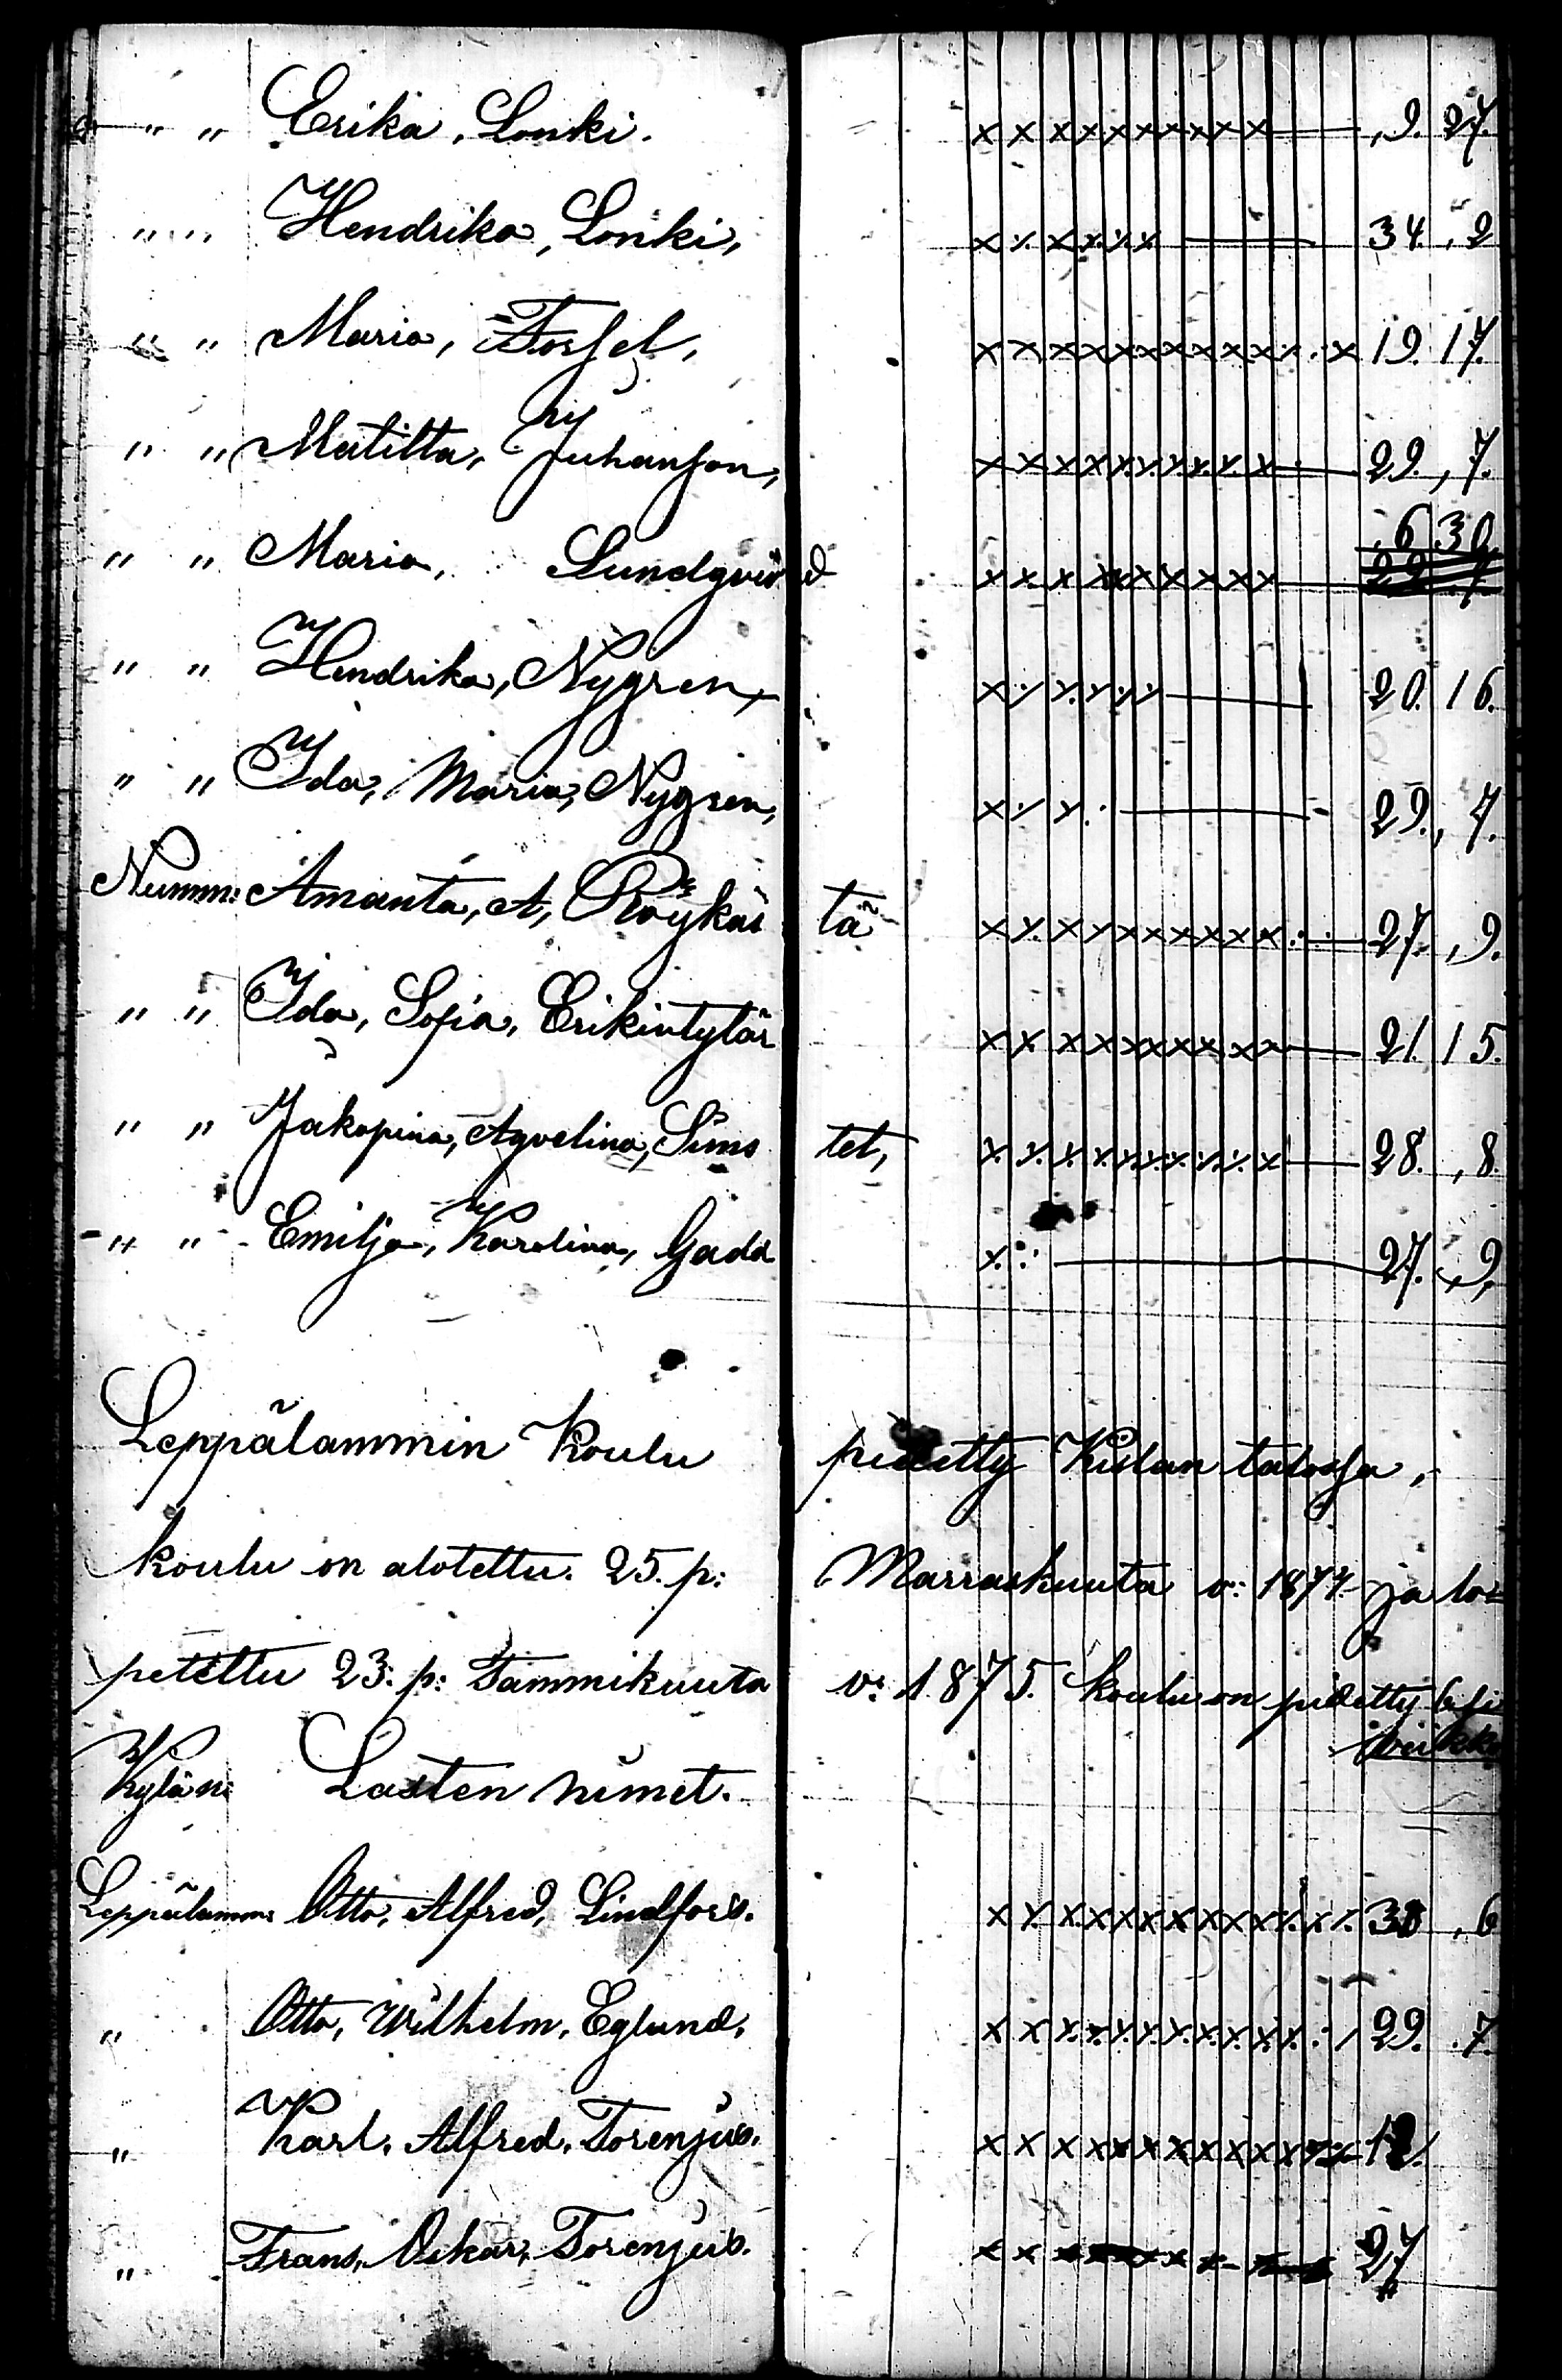 " " Erika, Lonki. x x x x x x x x x x — ,9. 27.
" " Hendrika, Lonki, 34. ,2
" " Maria, Forsel, 19. 17.
" " Matilta, Juhanson, 29. ,7.
" " Maria, Lundqvist ,6. 30
" " Hendrika, Nygren, 20. 16.
" " Ida, Maria, Nygren, 29., 7.
Numm: Amanta, A, Röykäs tä 27. ,9.
" " Ida, Sofia, Erikintytär 21. 15.
" " Jakopina, Agvelina, Sims tet, 28. ,8.
" " Emilja, Karolina, Gadd 27. ,9,
Leppälammin Koulu pidetty talossa,
koulu on alotettu. 25. p: Marraskuuta v: 1874 ja lo=
petettu 23. p: Tammikuuta v: 1875. koulu on pidetty 6si
Kylän: Lasten nimet.
Leppälamm: Otto, Alfred, Lindfors. ,6
" Otto, Wilhelm, Eglund, 29. .7.
" Karl, Alfred, Torenjus.
" Frans, Oskar, Torenjus. 27